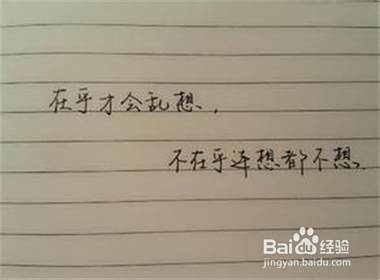 在乎才会乱想，
不在乎连想都不想。
Baidu经验
jingyan.baidu.com